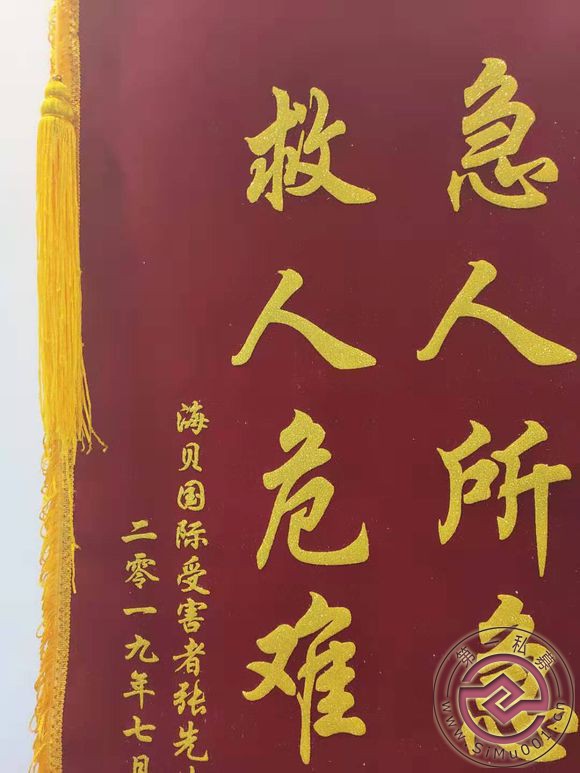 急人所急
救人危难
海贝国际受害者张先
二零一九年七月
私募
www.simu001.cn